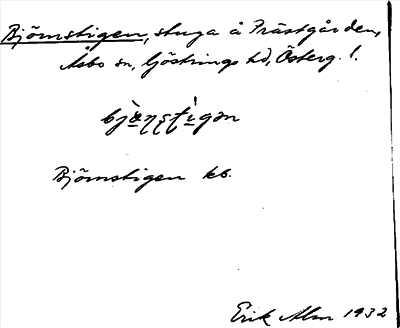 Björnstigen, stuga å Prästgården,
Åsbo sn, Göstrings hd, Österg. l.
bjö̀ɳʂtìgən
Björnstigen kb.
Erik Alm 1932